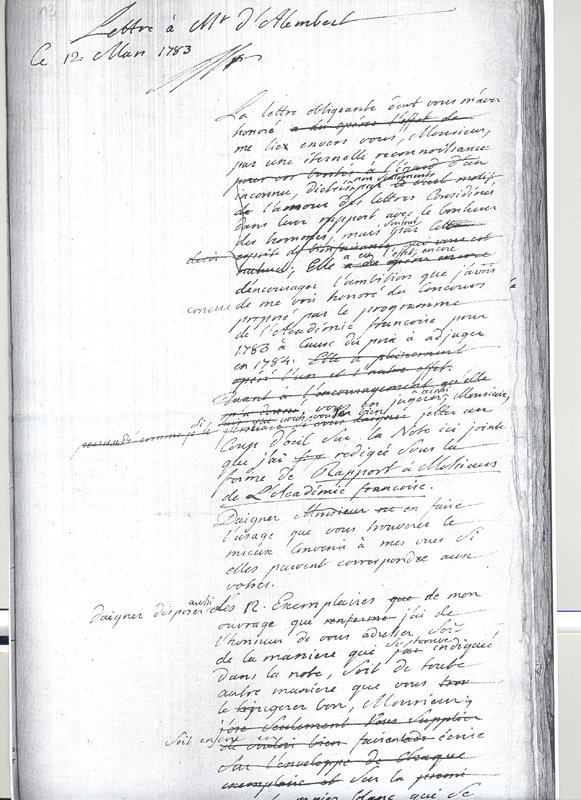 13
Lettre à Mr d'Alembert
Ce 12 Mars 1783
La lettre obligeante dont vous m'avez
honoré a du opérer l'effet de
me lier envers vous, Monsieur,
par une éternelle reconnoissance
pour vos bontés à l'égard d'un
inconnu, dictées, non seulement par le seul motif
de l'amour des lettres considérées
dans leur rapport avec le bonheur
des hommes, mais surtout par cette
esprit de bienfaisance qui vous est
naturel; Elle a eu l'effet, encore a du opérer encore
d'encourager l'ambition que j'avois
de me voir honoré du Concours
proposé par le programme
de l'Académie françoise pour
1783 à Cause du prix à adjuger
en 1784. Elle a pleinement
opéré l'un et l'autre effet.
Quant à l'encouragement qu'elle
m'a donné, vous en jugerez, Monsieur,
si vous voulez bien jetter un
Coup d'oeil sur la Note ici jointe
que j'ai redigée sous la
forme de Rapport à Messieurs
de L'Académie françoise.
Daigner Monsieur en faire
l'usage que vous trouverez le
mieux Convenir à mes vues si
elles peuvent correspondre aux
votres.
daigner disposer aussi
des 12. Exemplaires que de mon
ouvrage que renferme j'ai de
l'honneur de vous adresser soit
de la maniere que j'ai indiqué
dans la note, soit de toute
autre maniere que vous
le jugerez bon, Monsieur;
j'ose seulement vous supplier
de vouloir bien faire écrire
sur l'enveloppe de Chaque
exemplaire et sur la
papier blanc qui se